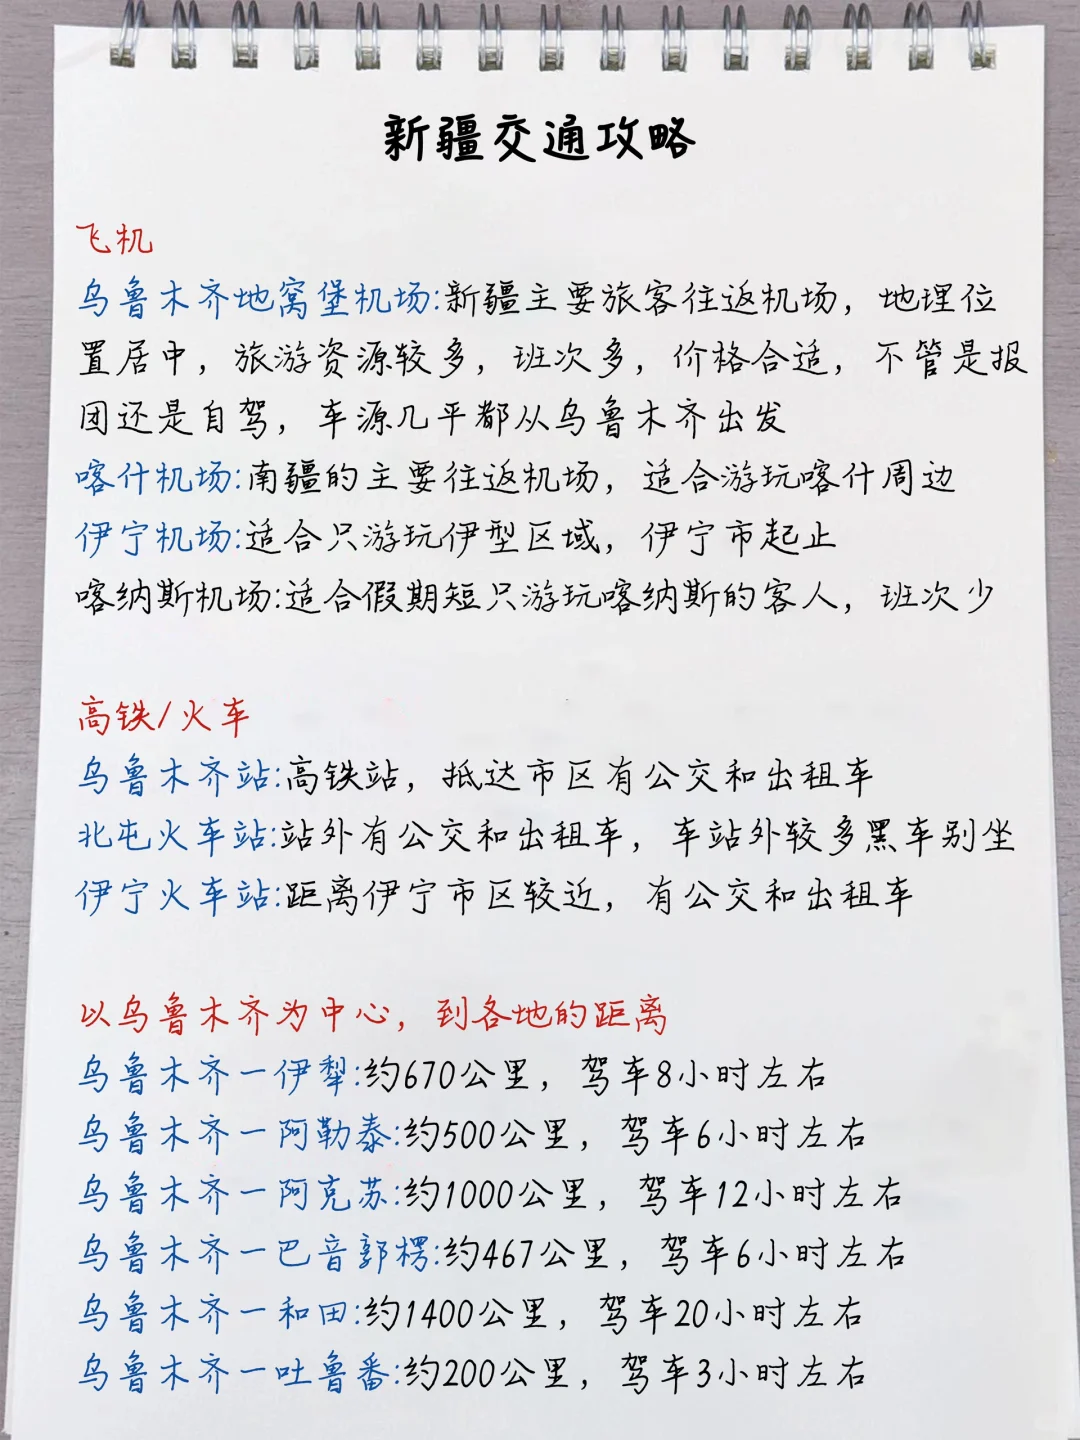 新疆交通攻略
飞机
乌鲁木齐地窝堡机场:新疆主要旅客往返机场，地理位
置居中，旅游资源较多，班次多，价格合适，不管是报
团还是自驾，车源几乎都从乌鲁木齐出发
喀什机场:南疆的主要往返机场，适合游玩喀什周边
伊宁机场:适合只游玩伊型区域，伊宁市起止
喀纳斯机场:适合假期短只游玩喀纳斯的客人，班次少
高铁/火车
乌鲁木齐站:高铁站，抵达市区有公交和出租车
北屯火车站:站外有公交和出租车，车站外较多黑车别坐
伊宁火车站:距离伊宁市区较近，有公交和出租车
以乌鲁木齐为中心，到各地的距离
乌鲁木齐一伊犁:约670公里，驾车8小时左右
乌鲁木齐一阿勒泰:约500公里，驾车6小时左右
乌鲁木齐一阿克苏:约1000公里，驾车12小时左右
乌鲁木齐一巴音郭楞:约467公里，驾车6小时左右
乌鲁木齐一和田:约1400公里，驾车20小时左右
乌鲁木齐一吐鲁番:约200公里，驾车3小时左右